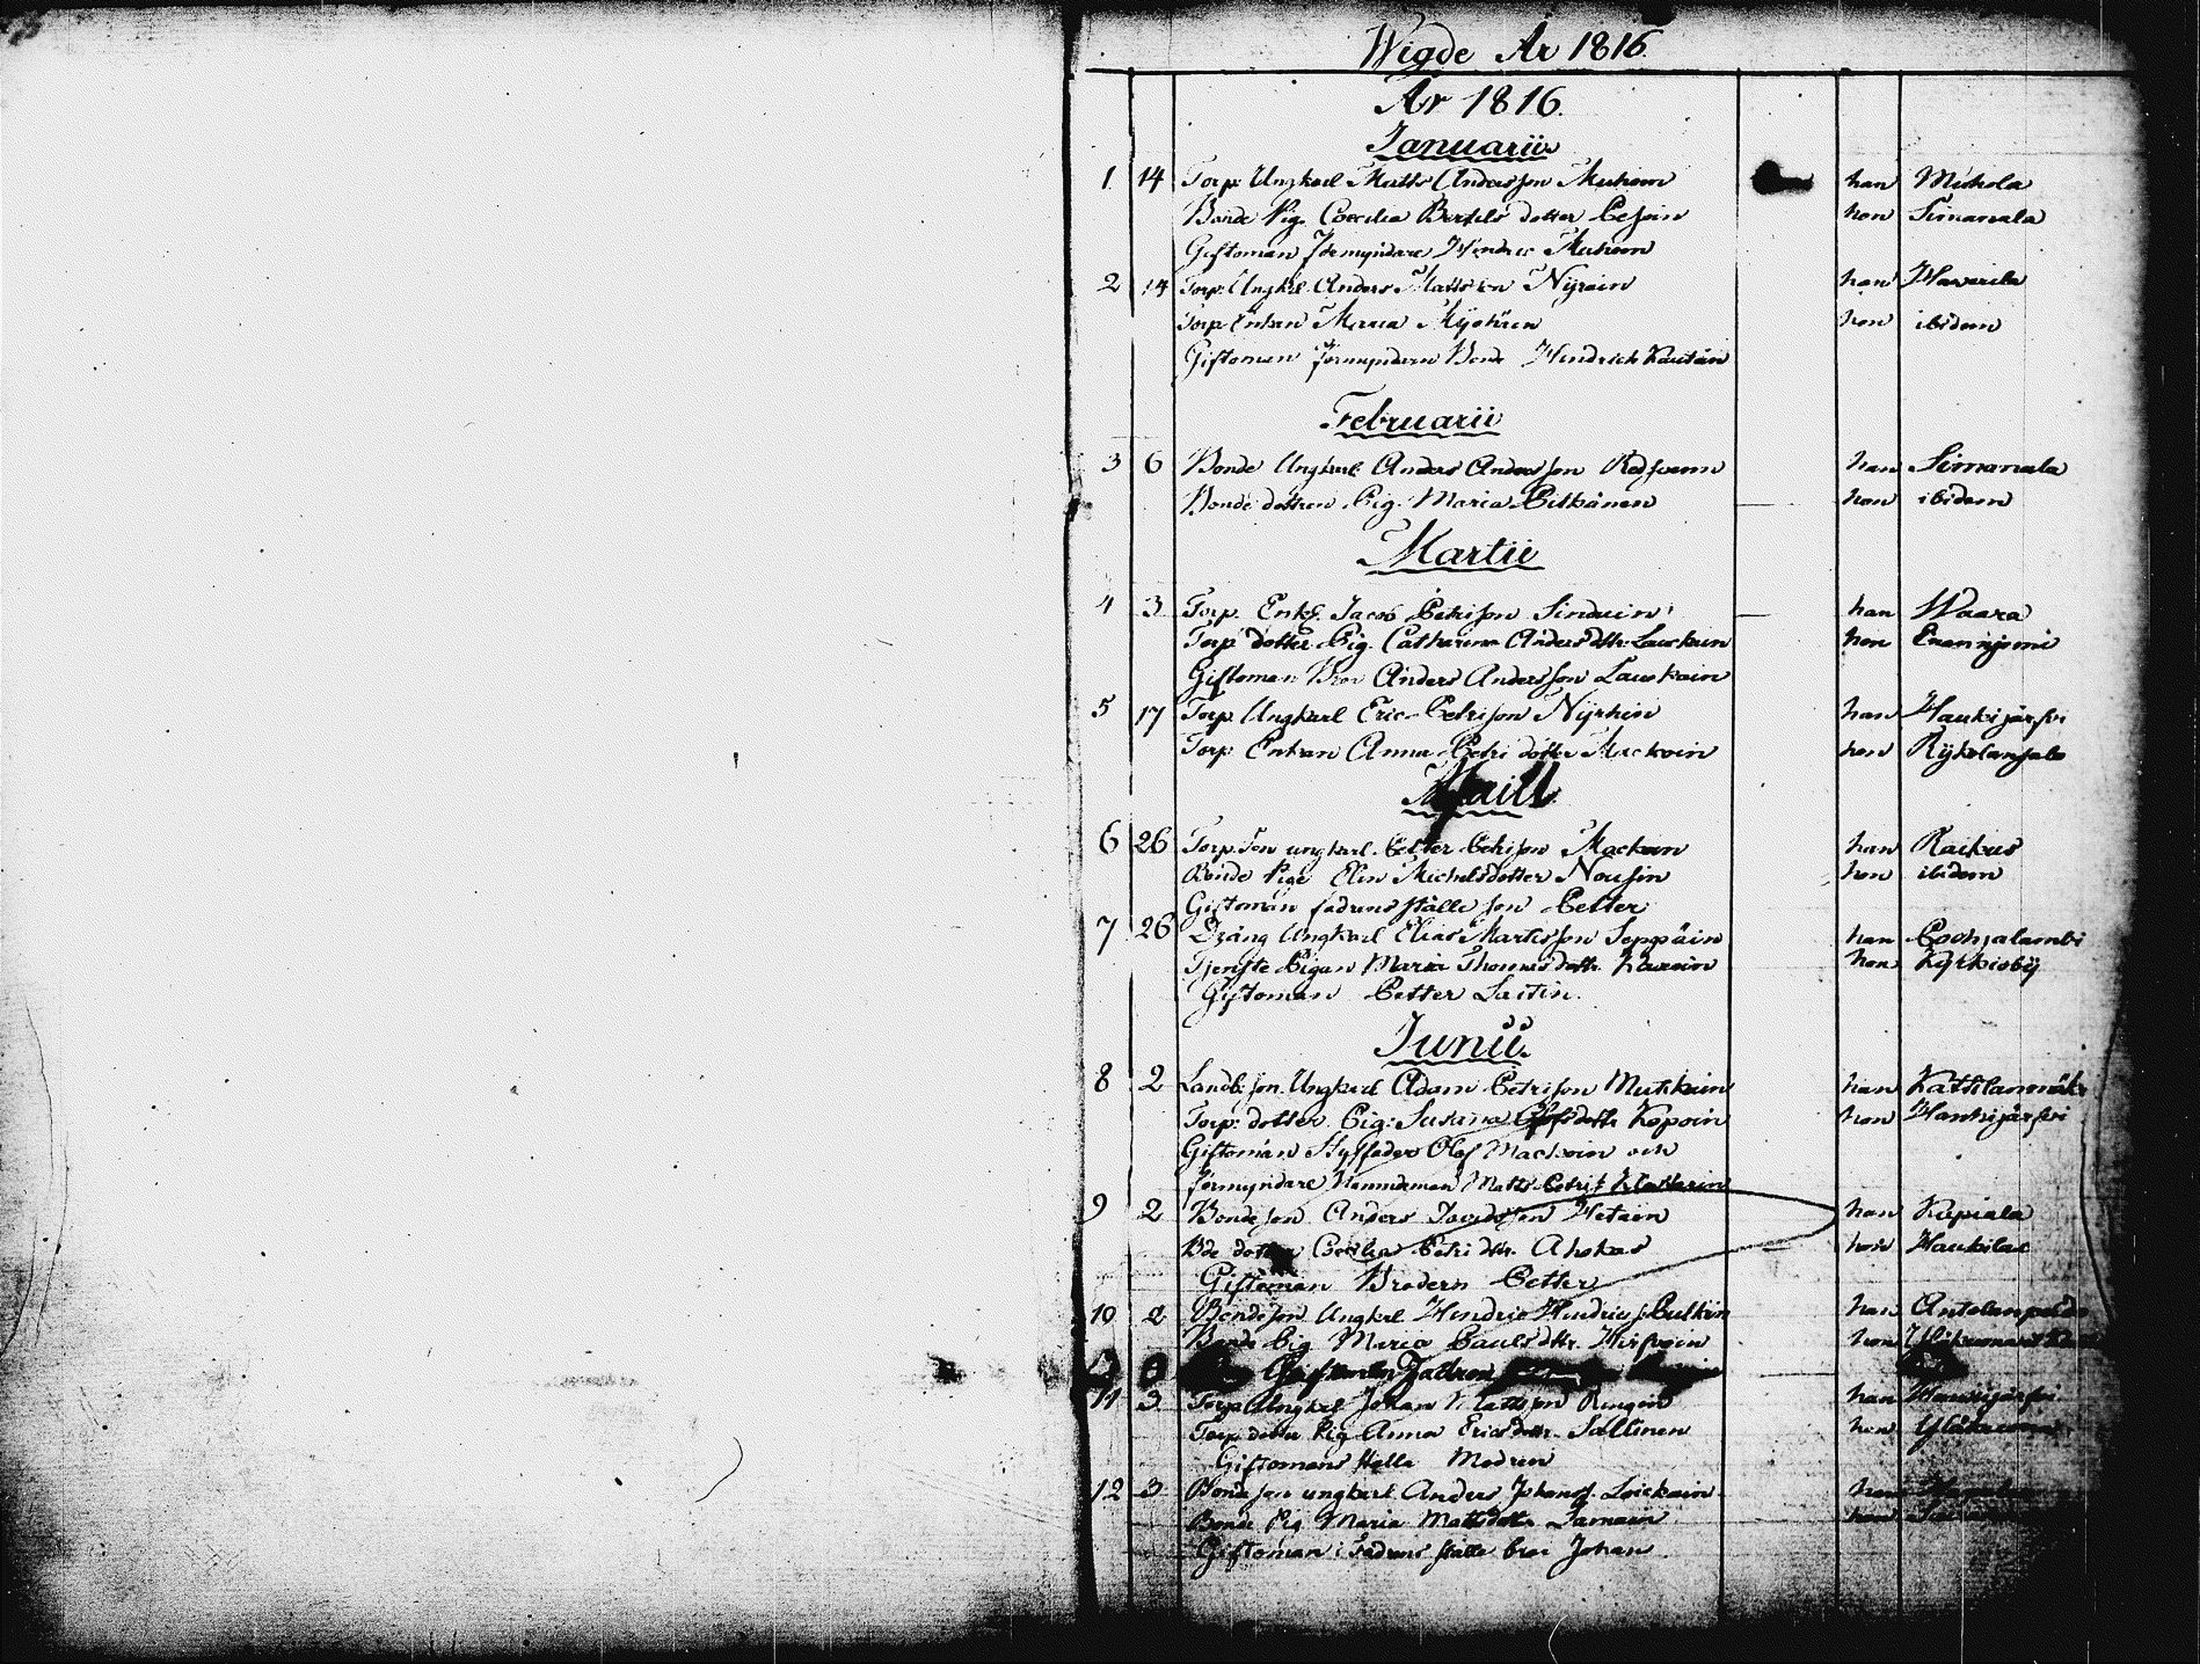 Wigde År 1816.
År 1816.
Januarii
1 14 Torp. Ungkarl Matts Andersson Muhoin han Michola
Bonde Pig. Coecilia Bertils dotter Pesoin hon Simanala
Giftoman Förmyndare Hendric Muhoin
2 14 Torp. Ungkl. Anders Mattsson Nyrein han Hawerila
Torp Enkan Maria Myöhäin hon ibidem
Giftoman förmyndaren Bonde Hendrich Kautain
Februarii
3 6 Bonde Ungkarl Anders Andersson han Simanala
Bonde dottren Pig. Maria Pitkänen hon ibidem
Martii
4 3 Torp. Enkl. Jacob Petrisson Sinduin han Waara
Torp dotter Pig. Catharina Andersdttr. Laukain hon
Giftoman Bror Anders Andersson Laukain
5 17 Torp. Ungkarl Eric Petrisson Nyrhin han Haukijärfvi
Torp. Enkan Anna Petri dotter Mackoin hon Rykolansalo
Maii
6 26 Torp. Son ungkarl Petter Petrisson Mackoin han Raikus
Bonde Piga Elin Michelsdotter Nousin hon ibidem
Giftoman fadrens ställe son Petter
7 26 Dräng Ungkarl Elias Martisson Seppäin han Pochjalambi
Tjenste Pigan Maria Thomas dottr. hon Kyrkioby
Giftoman Petter Laitin.
Junii
8 2 Landb. son Ungkarl Adam Petrisson Mutikain han Kattilanmäki
Torp. dotter Pig. Susanna Olofsdottr Kopoin hon Haukijärfvi
Giftoman Styffader Olof Mackoin och
förmyndare Nämndeman Matts Petris.
9 2 Bonde son Anders Davidsson Hetäin han Kupiala
Bde dotter Coecilia Petri dttr. Ahokas hon Haukila
Giftoman Brodern Petter
10 2 Bondeson Ungkrl Hendric Hendrics. Pulkin han
Bonde Pig Maria Pauls dttr. Hirfvoin hon
Giftoman Fadren
11 3 Torp. Ungkrl Johan Mattsson han
Torp. dotter Pig Anna Ericsdottr. Saltinen hon
Giftomans ställe Modren
12 3 Bonde son ungkarl Anders Johanss. Loickain han
Bonde Pig Maria Mattsdottr. hon
Giftoman i Fadrens ställe bror Johan